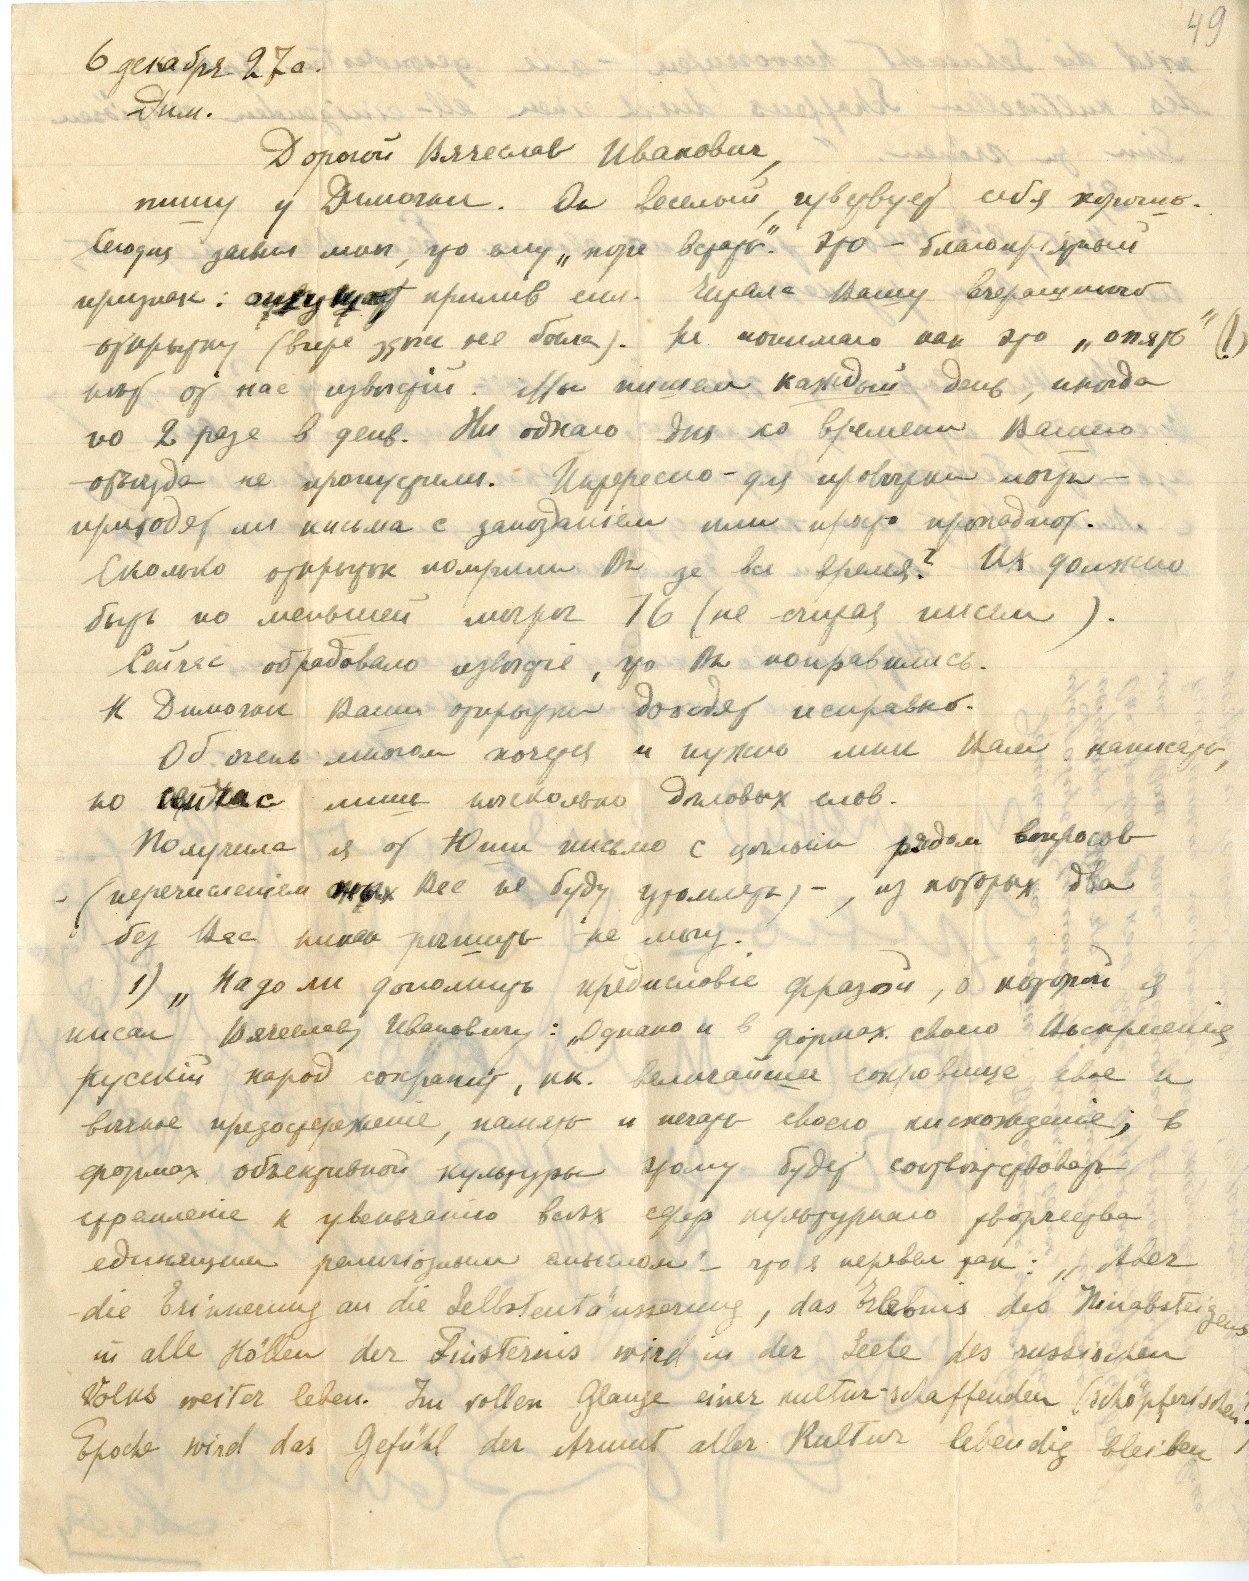 49
6 декабря 27 г.
Дим.
Дорогой Вячеслав Иванович,
пишу у Димочки. Он веселый, чувствует себя хорошо.
Сегодня заявил мне, что ему „пора встать". Это – благоприятный
признак: прилив сил. Читала Вашу вчерашнюю
открытку (вчера здесь не была). Не понимаю как это „опять" (!)
нет от нас извѣстій. Мы пишем каждый день, иногда
по 2 раза в день. Ни одного дня со времени Вашего
отъѣзда не пропустили. Интересно – для провѣрки почты –
приходят ли письма с запозданіем или просто пропадают.
Сколько открыток получили Вы за все время? Их должно
быть по меньшей мѣрѣ 76 (не считая писем).
Сейчас обрадовало извѣстіе, что Вы поправились.
К Димочке Ваши открытки доходят исправно.
Об очень многом хочется и нужно мне Вам написать,
но сейчас лишь нѣсколько дѣловых слов.
Получила я от Юши письмо с цѣлым рядом вопросов
(перечисленіем Вас не буду утомлять) –, из которых два
без Вас никак рѣшить не могу.
1) „Надо ли дополнить предисловіе фразой, о которой я
писал Вячеславу Ивановичу: „Однако и в формах своего Воскресенія
русскій народ сохранит, как величайшее сокровище свое и
вѣчное предостереженіе, память и печать своего нисхожденія; в
формах объективной культуры этому будет соотвѣтствовать
стремленіе к увѣнчанію всѣх сфер культурнаго творчества
единящим религіозным смыслом" – что я перевел так: „Aber
die Erinnerung an die Selbstentäusserung, das Erlebnis des Hinabsteigens
in alle Höllen der Finsternis wird in der Seele des russischen
Volks weiter leben. Im vollen Glanze einer kultur-schaffenden (schöpferischen?)
Epoche wird das Gefühl der Armut aller Kultur lebendig bleiben